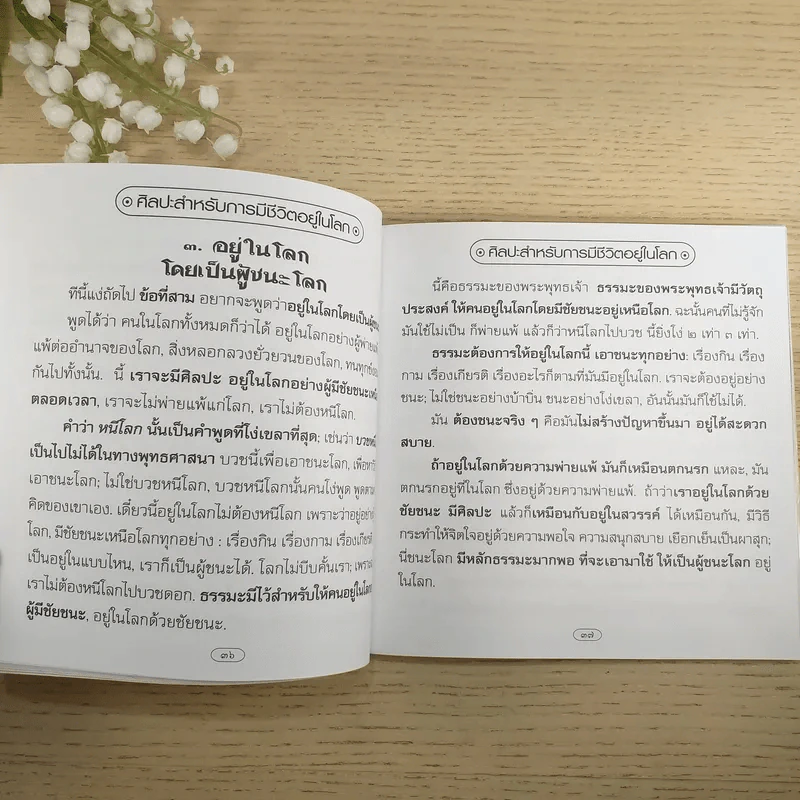 ศิลปะสำหรับการมีชีวิตอยู่ในโลก
๓. อยู่ในโลก
โดยเป็นผู้ชนะโลก
ทีนี้แง่ถัดไป ข้อที่สาม อยากจะพูดว่าอยู่ในโลกโดยเป็นผู้ชนะ
พูดได้ว่า คนในโลกทั้งหมดก็ว่าได้ อยู่ในโลกอย่างผู้พ่ายแพ้
แพ้ต่ออำนาจของโลก, สิ่งหลอกลวงยั่วยวนของโลก, ทนทุกข์
กันไปทั้งนั้น. นี้ เราจะมีศิลปะ อยู่ในโลกอย่างผู้มีชัยชนะ
ตลอดเวลา, เราจะไม่พ่ายแพ้แก่โลก, เราไม่ต้องหนีโลก.
คำว่า หนีโลก นั้นเป็นคำพูดที่โง่เขลาที่สุด; เช่นว่า บวช
เป็นไปไม่ได้ในทางพุทธศาสนา บวชนี้เพื่อเอาชนะโลก,
เอาชนะโลก; ไม่ใช่บวชหนีโลก, บวชหนีโลกนั้นคนโง่พูด พูดตาม
คิดของเขาเอง. เดี๋ยวนี้อยู่ในโลกไม่ต้องหนีโลก เพราะว่าอยู่
โลก, มีชัยชนะเหนือโลกทุกอย่าง : เรื่องกิน เรื่องกาม เรื่องเกียรติ
เป็นอยู่ในแบบไหน, เราก็เป็นผู้ชนะได้. โลกไม่บีบคั้นเรา;
เราไม่ต้องหนีโลกไปบวชดอก. ธรรมะมีไว้สำหรับให้คนอยู่ในโลก
ผู้มีชัยชนะ, อยู่ในโลกด้วยชัยชนะ.
๓๖
ศิลปะสำหรับการมีชีวิตอยู่ในโลก
นี้คือธรรมะของพระพุทธเจ้า ธรรมะของพระพุทธเจ้ามีวัตถุ
ประสงค์ ให้คนอยู่ในโลกโดยมีชัยชนะอยู่เหนือโลก. ฉะนั้นคนที่ไม่รู้จัก
มันใช้ไม่เป็น ก็พ่ายแพ้ แล้วก็ว่าหนีโลกไปบวช นี้ยิ่งโง่ ๒ เท่า ๓ เท่า.
ธรรมะต้องการให้อยู่ในโลกนี้ เอาชนะทุกอย่าง: เรื่องกิน เรื่อง
กาม เรื่องเกียรติ เรื่องอะไรก็ตามที่มันมีอยู่ในโลก. เราจะต้องอยู่อย่าง
ชนะ; ไม่ใช่ชนะอย่างบ้าบิ่น ชนะอย่างโง่เขลา, อันนั้นมันก็ใช้ไม่ได้.
มัน ต้องชนะจริง ๆ คือมันไม่สร้างปัญหาขึ้นมา อยู่ได้สะดวก
สบาย.
ถ้าอยู่ในโลกด้วยความพ่ายแพ้ มันก็เหมือนตกนรก แหละ, มัน
ตกนรกอยู่ที่ในโลก ซึ่งอยู่ด้วยความพ่ายแพ้. ถ้าว่าเราอยู่ในโลกด้วย
ชัยชนะ มีศิลปะ แล้วก็เหมือนกับอยู่ในสวรรค์ ได้เหมือนกัน, มีวิธี
กระทำให้จิตใจอยู่ด้วยความพอใจ ความสนุกสบาย เยือกเย็นเป็นผาสุก;
นี่ชนะโลก มีหลักธรรมะมากพอ ที่จะเอามาใช้ ให้เป็นผู้ชนะโลก อยู่
ในโลก.
๓๗